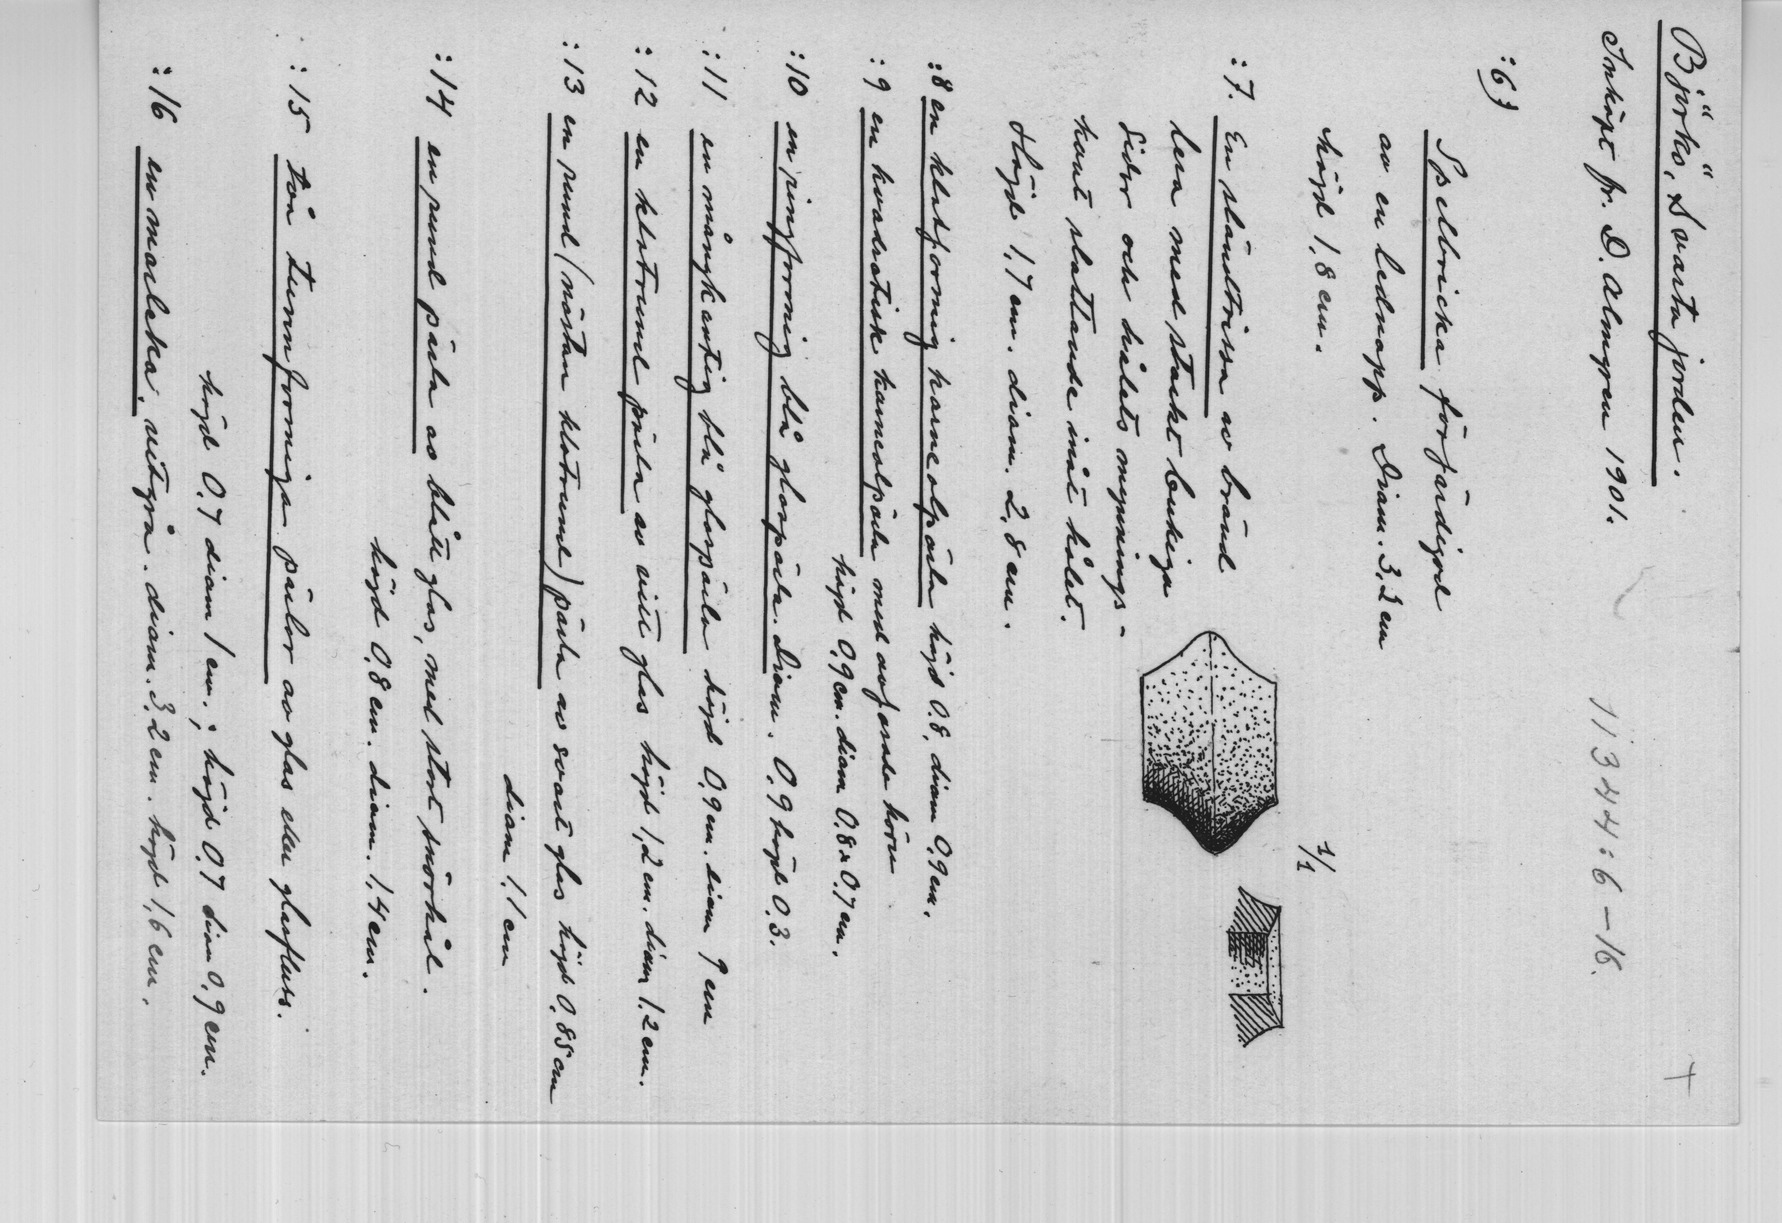 Björkö, "Svarta jorden".
Inköpt fr. O. Almgren 1901.
11344:6-16.
:6)
Spelbricka förfärdigad
av en ledknapp. Diam. 3,2 cm
höjd 1,8 cm.
1/1
:7. En sländtrissa av bränd
lera med starkt bukiga
sidor och hålets mynnings-
kant sluttande inåt hålet.
Höjd 1,7 cm. diam. 2,8 cm.
:8 en klotformig karneolpärla höjd 0,8. diam 0,9 cm.
:9 en kvadratisk karneolpärla med avfasade hörn
höjd 0,9 cm. diam 0,8 x 0,7 cm.
:10 en ringformig blå glaspärla. Diam. 0,9 höjd 0,3.
:11 en mångkantig blå glaspärla höjd 0,9 cm. diam 9 cm
:12 en klotrund pärla av vitt glas höjd 1,2 cm. diam 1,2 cm.
:13 en rund (nästan klotrund) pärla av svart glas höjd 0,85 cm
diam 1,1 cm
:14 en rund pärla av blått glas, med stort snörhål.
höjd 0,8 cm. diam. 1,4 cm.
:15 två tunnformiga pärlor av glas eller glasfluss.
höjd 0,7 diam 1 cm.; höjd 0,7 diam 0,9 cm.
:16 en marleka, vitgrå. diam. 3,2 cm. höjd 1,6 cm.